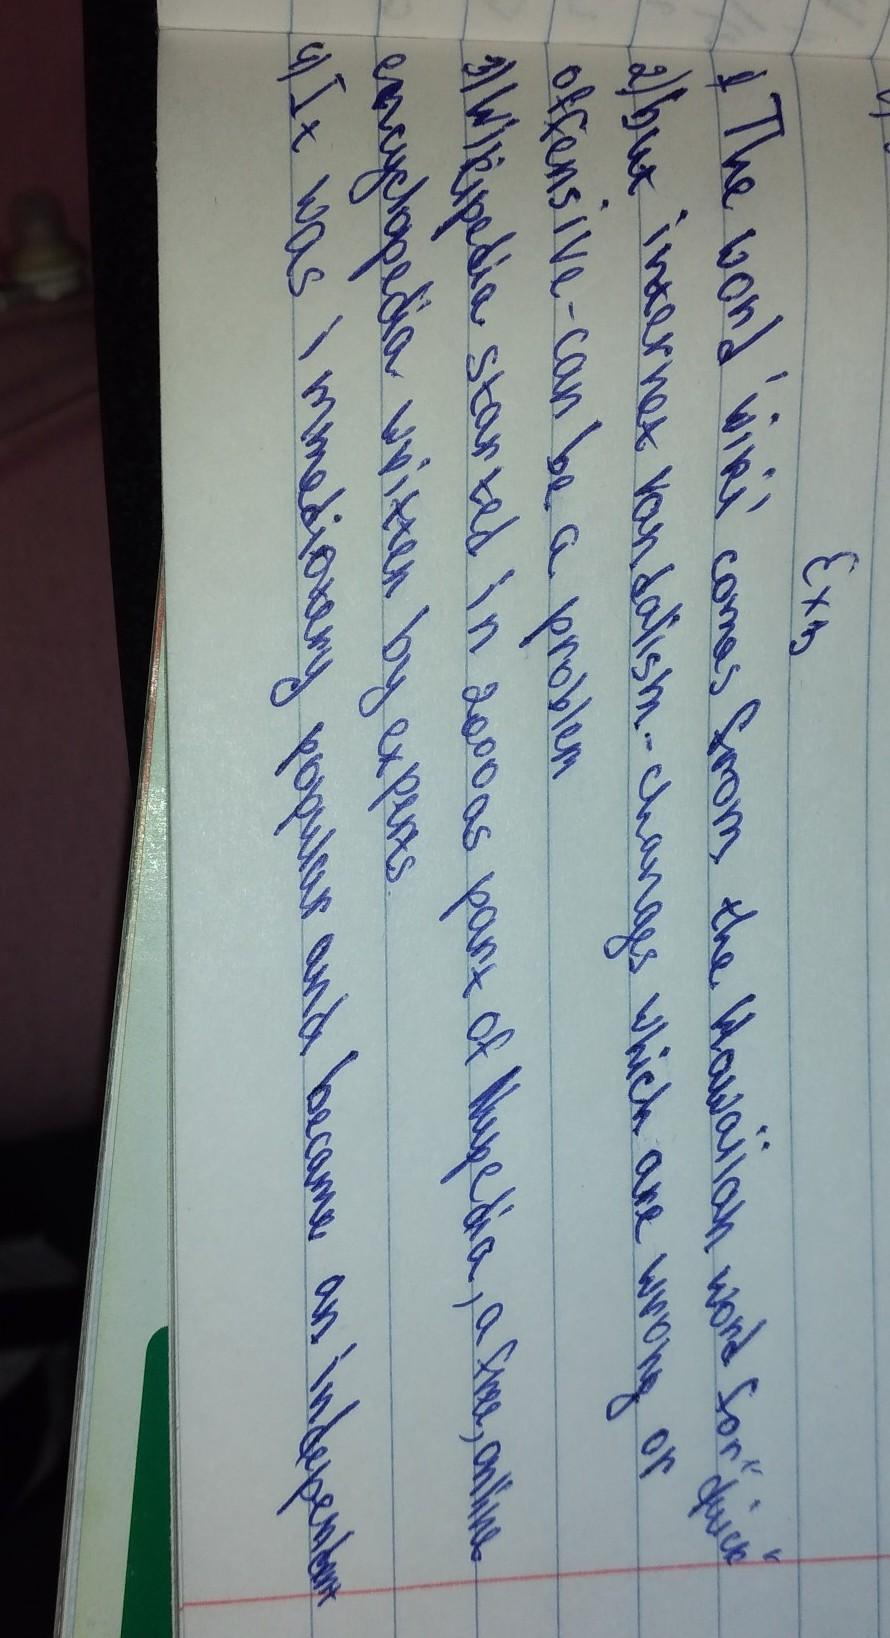 Ex3
1 The word 'wiki' comes from the Hawaiian word for "quick"
2) but internet vandalism - changes which are wrong or
offensive - can be a problem
3) Wikipedia started in 2000 as part of Nupedia, a free, online
encyclopedia written by experts.
4) It was immediately popular and became an independent